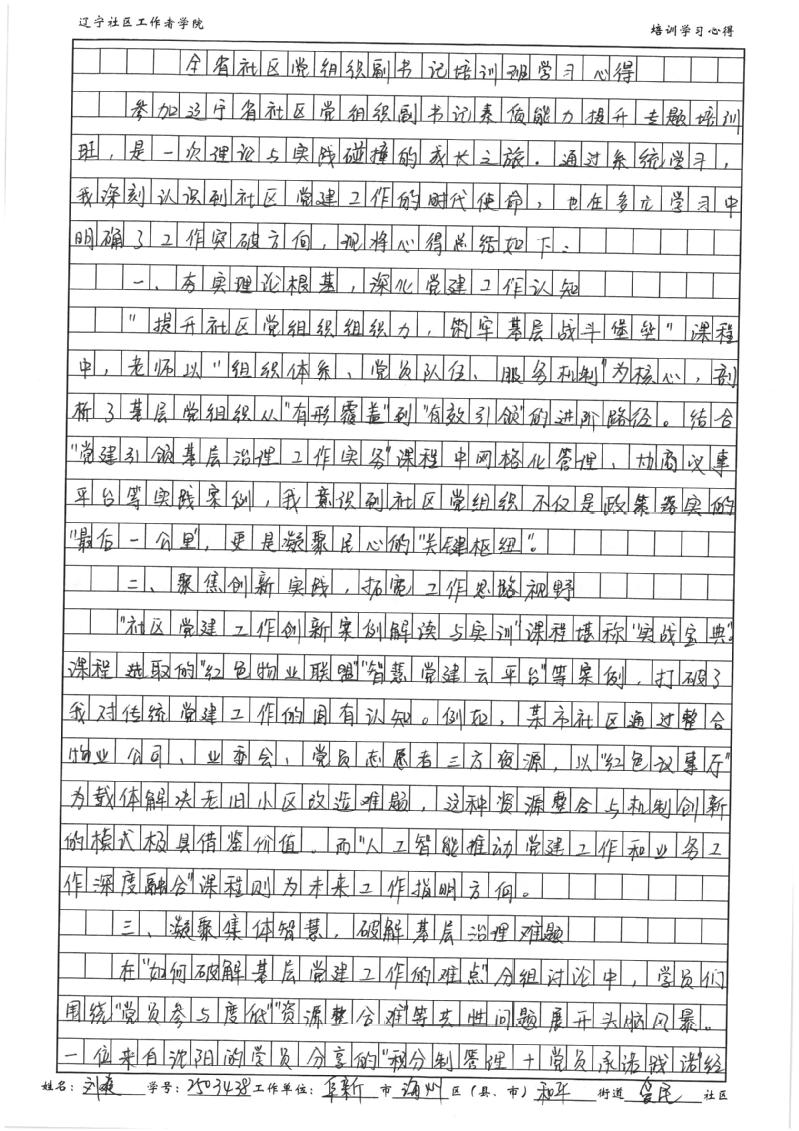 辽宁社区工作者学院
培训学习心得
全省社区党组织副书记培训班学习心得
参加辽宁省社区党组织副书记素质能力提升专题培训
班，是一次理论与实践碰撞的成长之旅。通过系统学习，
我深刻认识到社区党建工作的时代使命，也在多元学习中
明确了工作突破方向，现将心得总结如下：
一、夯实理论根基，深化党建工作认知
"提升社区党组织组织力，筑牢基层战斗堡垒"课程
中，老师以"组织体系、党员队伍、服务机制"为核心，剖
析了基层党组织从"有形覆盖"到"有效引领"的进阶路径。结合
"党建引领基层治理工作实务"课程中网格化管理、协商议事
平台等实践案例，我意识到社区党组织不仅是政策落实的
"最后一公里"，更是凝聚民心的"关键枢纽"。
二、聚焦创新实践，拓宽工作思路视野
"社区党建工作创新案例解读与实训"课程堪称"实战宝典"。
课程选取的"红色物业联盟""智慧党建云平台"等案例，打破了
我对传统党建工作的固有认知。例如，某市社区通过整合
物业公司、业委会、党员志愿者三方资源，以"红色议事厅"
为载体解决老旧小区改造难题，这种资源整合与机制创新
的模式极具借鉴价值。而"人工智能推动党建工作和业务工
作深度融合"课程则为未来工作指明方向。
三、凝聚集体智慧，破解基层治理难题
在"如何破解基层党建工作的难点"分组讨论中，学员们
围绕"党员参与度低""资源整合难"等共性问题展开头脑风暴。
一位来自沈阳的学员分享的"积分制管理+党员承诺践诺"经
姓名：刘爽 学号：2503438 工作单位：阜新市海州区（县、市）和平街道 社区